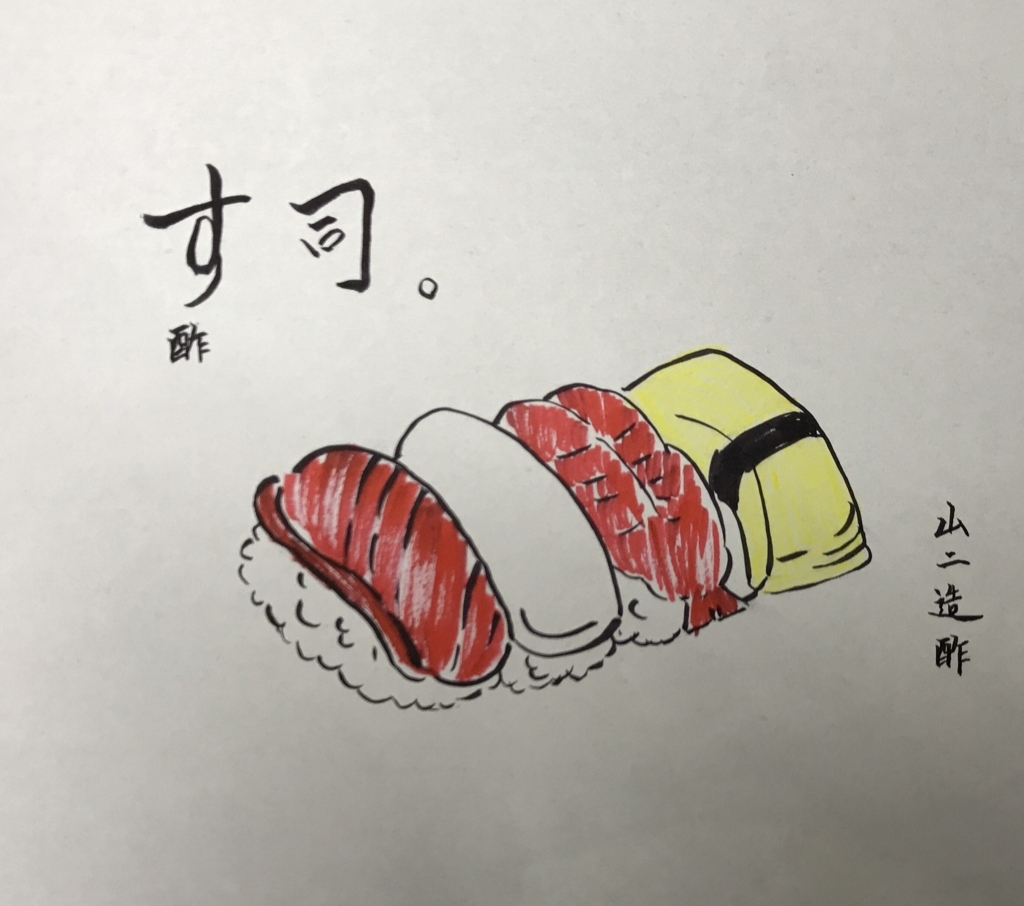 す司。
酢
山二造酢